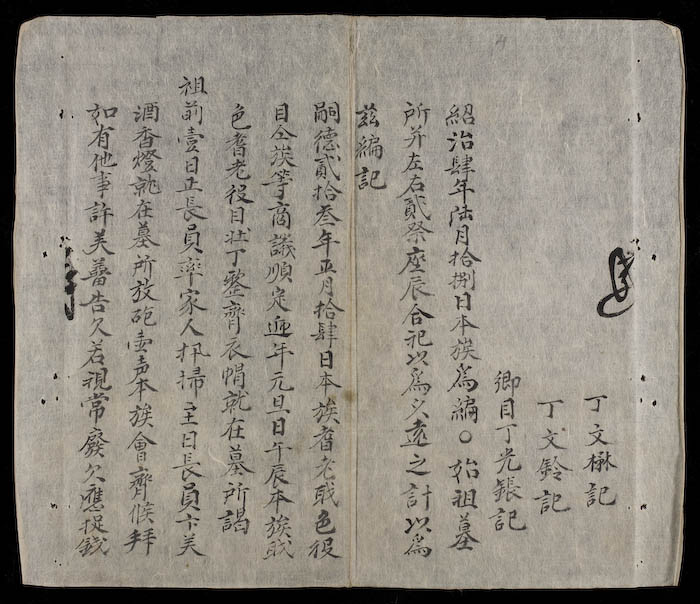 丁文楙記
丁文鈴記
鄉目丁光鋹記
紹治肆年陆月拾捌日本族爲編〇始祖墓
所并左右貳祭座辰合祀以爲久遠之計以爲
玆編記
嗣德貳拾叁年正月拾肆日本族耆老職色役
目仝族等商議順定迎年元旦日午辰本族職
色耆老役目壯丁整齊衣帽就在墓所謁
祖前壹日正長員率家人扫掃主日長員卞芙
酒香燈就在墓所放砲壹声本族會齊候拜
如有他事許芙蕃告欠若視常廢欠應捉錢